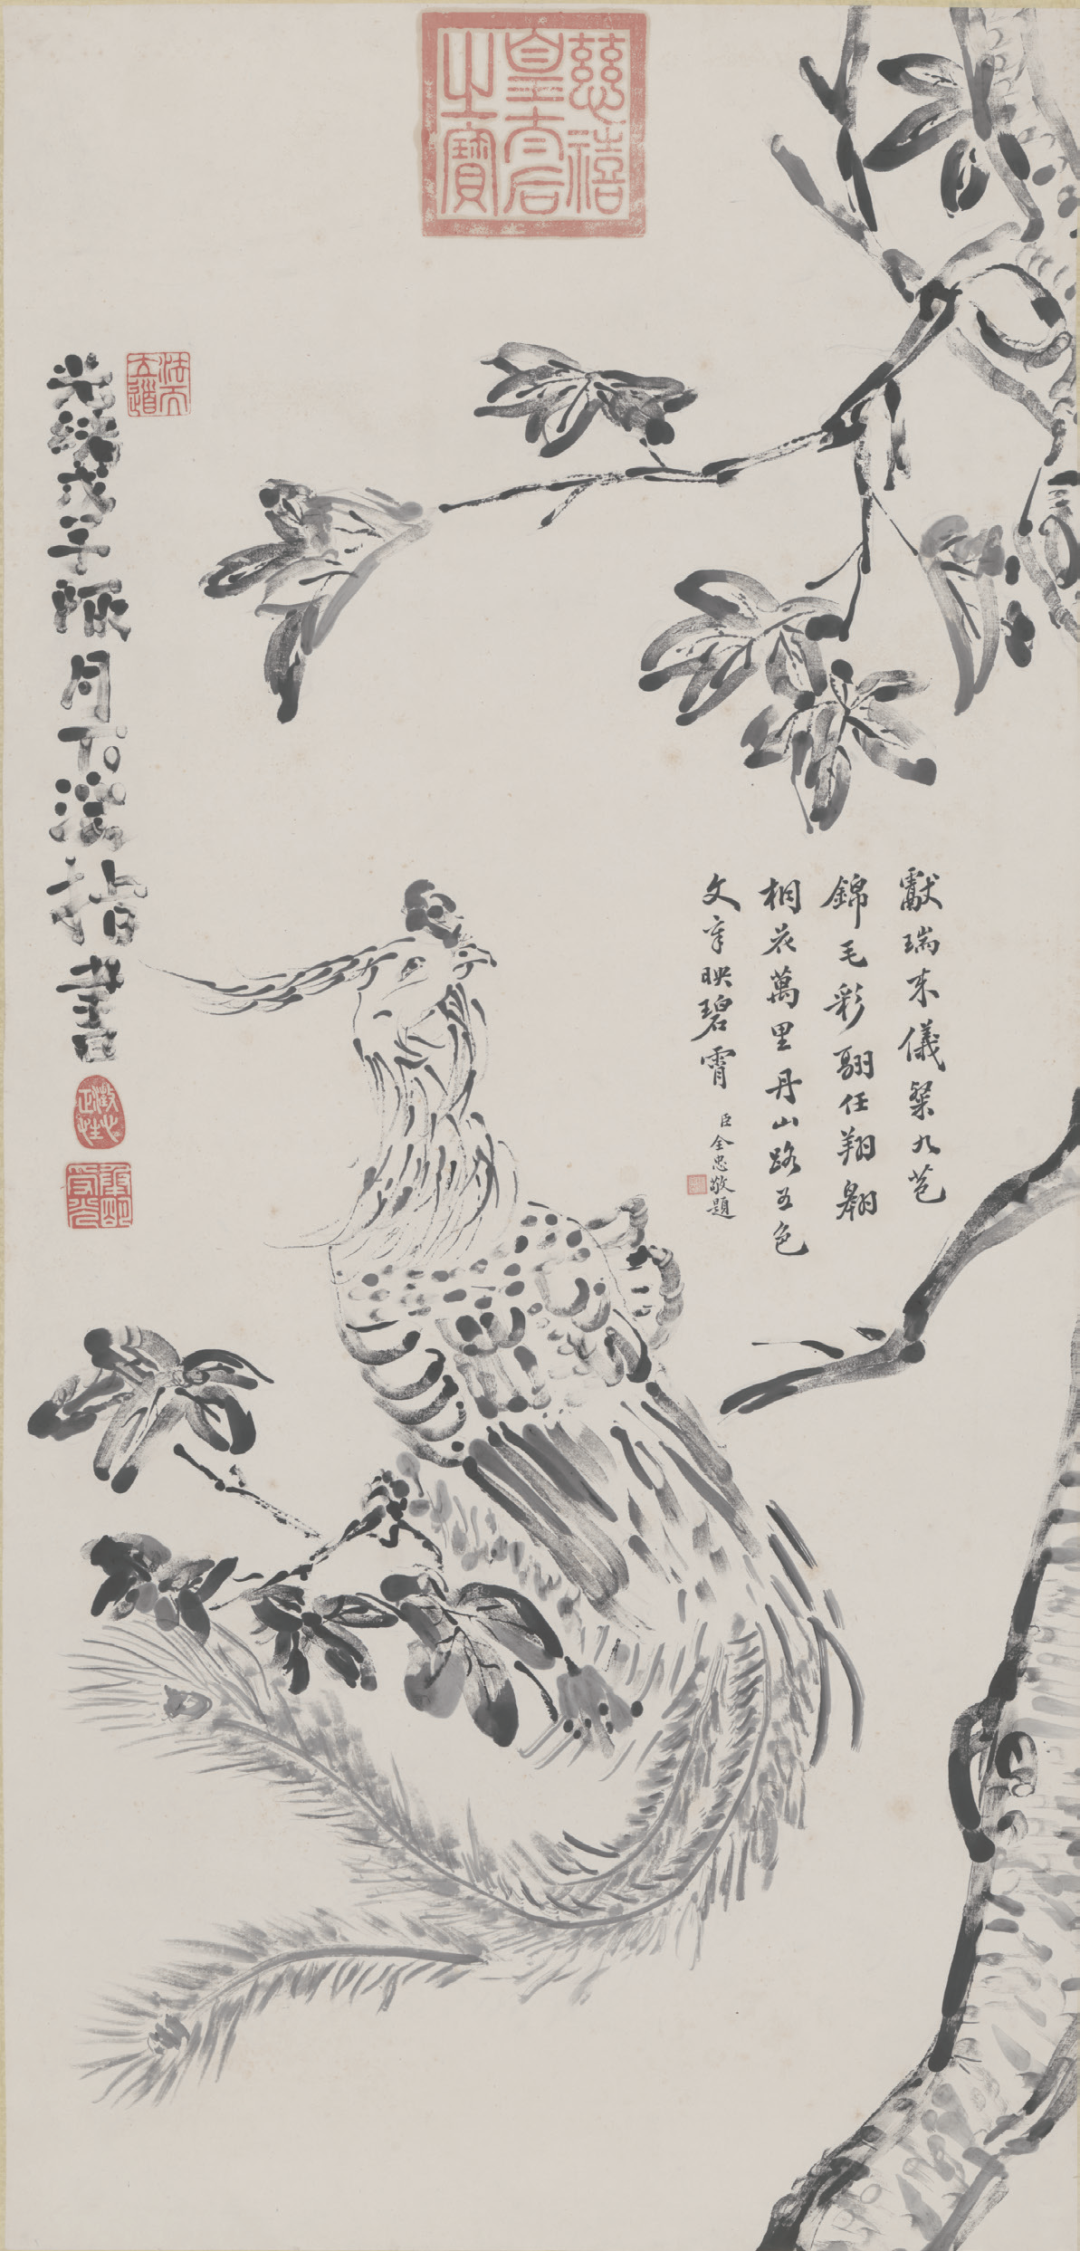 慈禧
皇太后
之寶
獻瑞來儀粲九苞
錦毛彩翮任翔翱
桐花萬里丹山路五色
文章映碧霄
臣全忠敬題
法天
立道
光緒戊子陬月下浣指書
澂心
正性